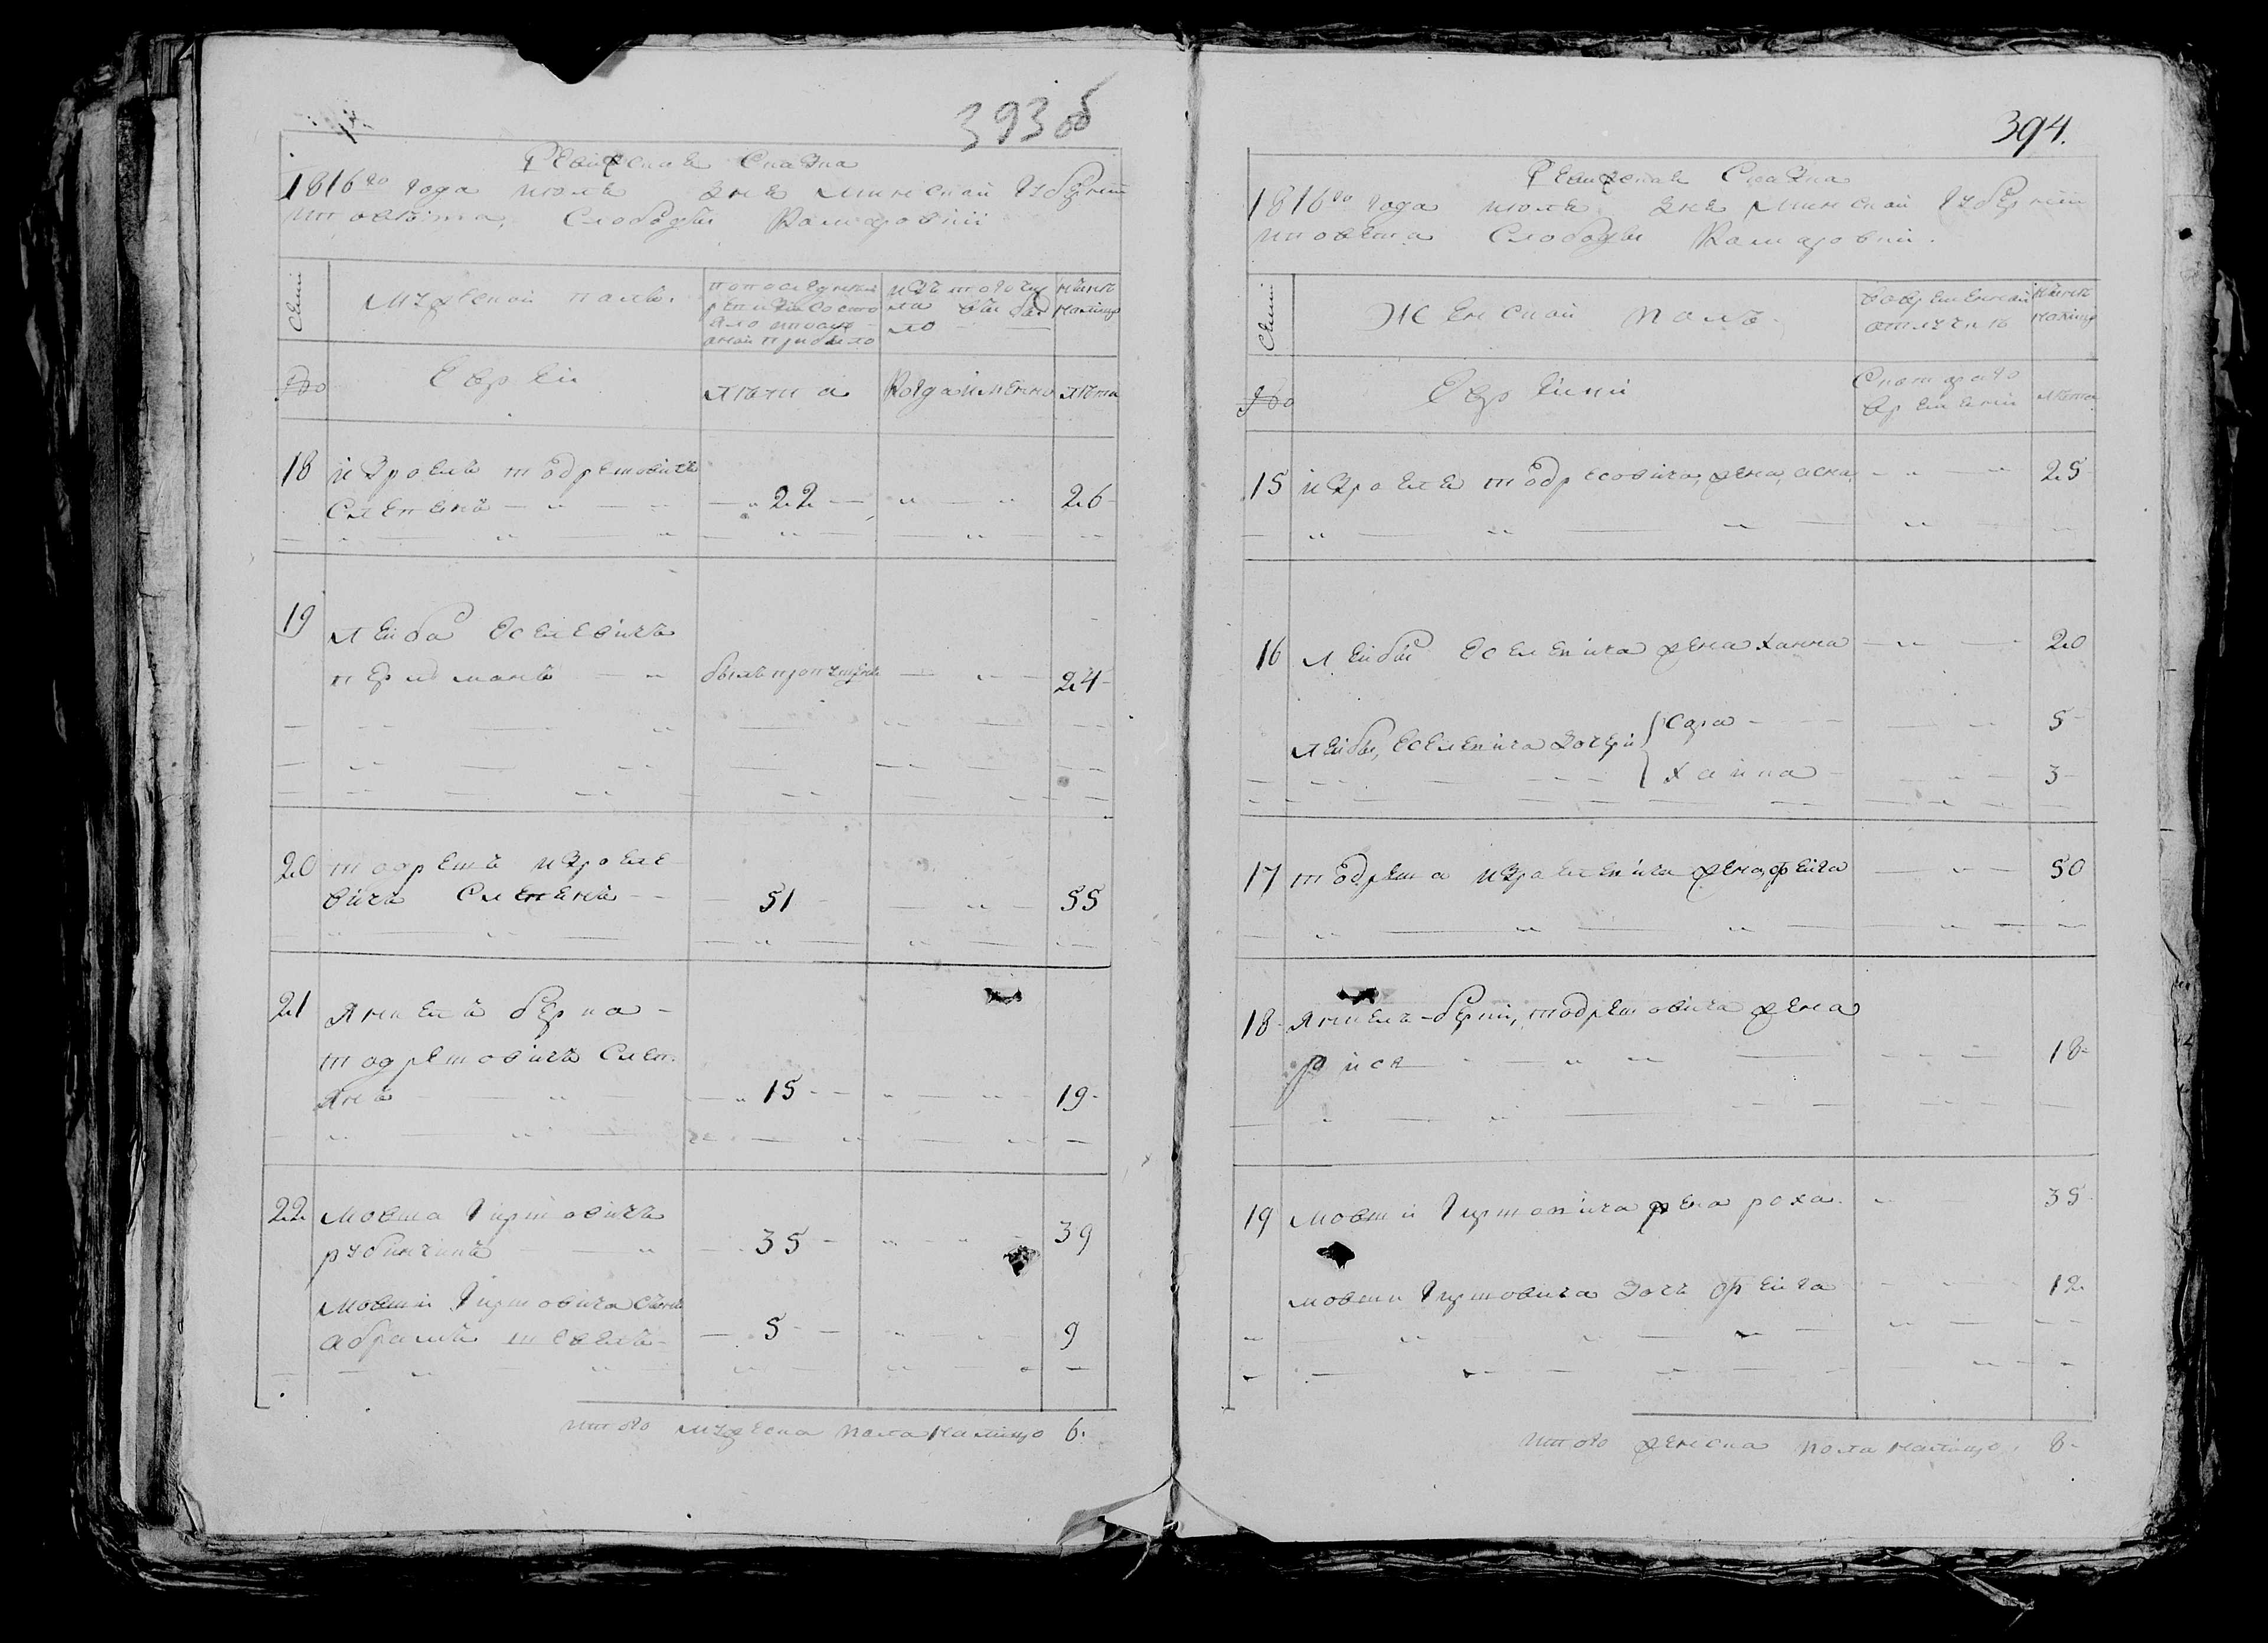 393 об
Ревизская Сказка
1816го года июля дня Минской Губернии
и повѣта, Слободы Комаровки
Семьи
Мужеской полъ.
по последней ревизіи состояло и после оной прибыло
изъ того числа выбыло
Нынѣ налицо
No
Евреи
Лѣта
Когда именно
Лѣта
18 Израель Тодресовичъ
Слепенъ 22 26
19 Лейба Еселевичъ
былъ пропущенъ 24
20 Тодресъ Израеле
вичъ Слепенъ 51 55
21 Янкель Берка
Тодресовичъ Слеп
янъ 15 19
22 Мовша Гиршовичъ
Рубинчикъ 35 39
Мовши Гиршовича Сынъ
Абрамъ 5 9
Итого мужеска пола налицо 6.
394.
Ревизская Сказка
1816го года июля дня Минской Губернии
и повета Слободы Комаровки.
Семьи
Женской полъ.
Во временной отлучкѣ
Нынѣ налицо
No
Еврейки
Съ котораго времени
Лѣта
15 Израеля Тодресовича жена Асна 25
16 Лейбы Еселевича жена Ханна 20
Лейбы Еселевича дочери Сара 5
Хайка 3
17 Тодреса Израелевича жена Фейга 50
18 Янкель-Берки Тодресовича жена
Риса 18
19 Мовши Гиршовича жена Роха 35
Мовши Гиршовича дочь Фейга 12
Итого женска пола налицо, 8